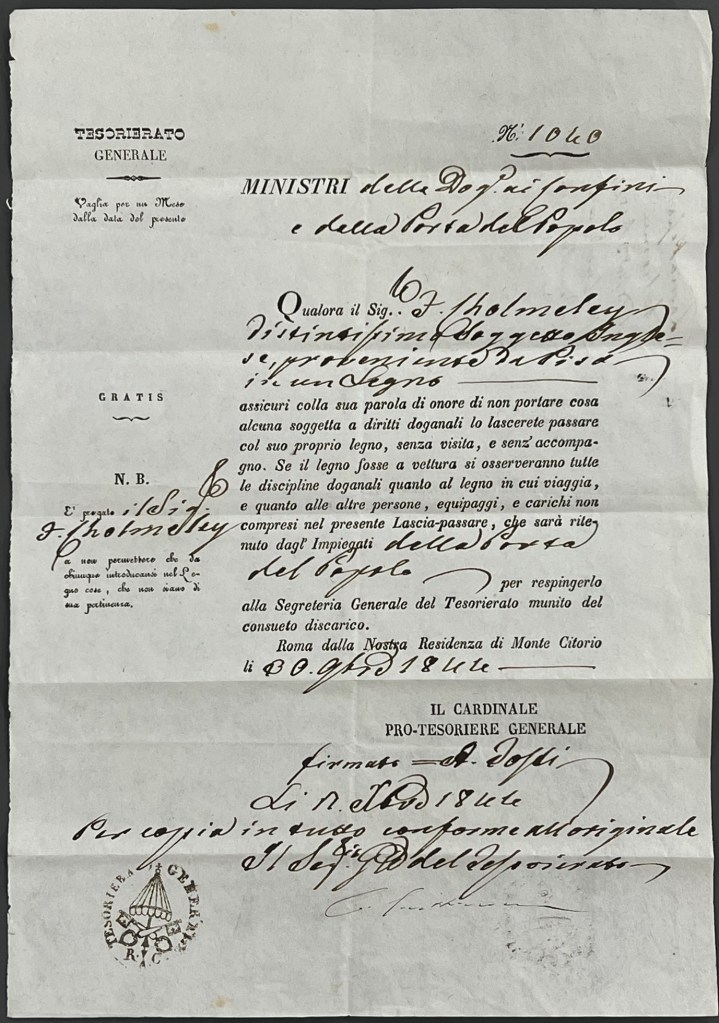 TESORIERATO
GENERALE
Vaglia per un Mese
dalla data del presente
N.° 1040
MINISTRI delle Dog.e ai confini
e della Porta del Popolo
Qualora il Sig.r F. Cholmeley
distintissimo Soggetto Ingle-
se, proveniente da Pisa
in un Legno
assicuri colla sua parola di onore di non portare cosa
alcuna soggetta a diritti doganali lo lascerete passare
col suo proprio legno, senza visita, e senz' accompa-
gno. Se il legno fosse a vettura si osserveranno tutte
le discipline doganali quanto al legno in cui viaggia,
e quanto alle altre persone, equipaggi, e carichi non
compresi nel presente Lascia-passare, che sarà rite-
nuto dagl' Impiegati della Porta
del Popolo per respingerlo
alla Segreteria Generale del Tesorierato munito del
consueto discarico.
Roma dalla Nostra Residenza di Monte Citorio
li 30. 9bre 1844
GRATIS
N. B.
E' pregato il Sig.r
F. Cholmeley
a non permettere che da
chiunque introducansi nel Le-
gno cose, che non siano di
sua pertinenza.
IL CARDINALE
PRO-TESORIERE GENERALE
firmato = A. Tosti
Li Xbre 1844
Per copia in tutto conforme all'originale
Il Seg.rio Gle del Tesorierato
TESORIERA GENERALE
R. C. A.